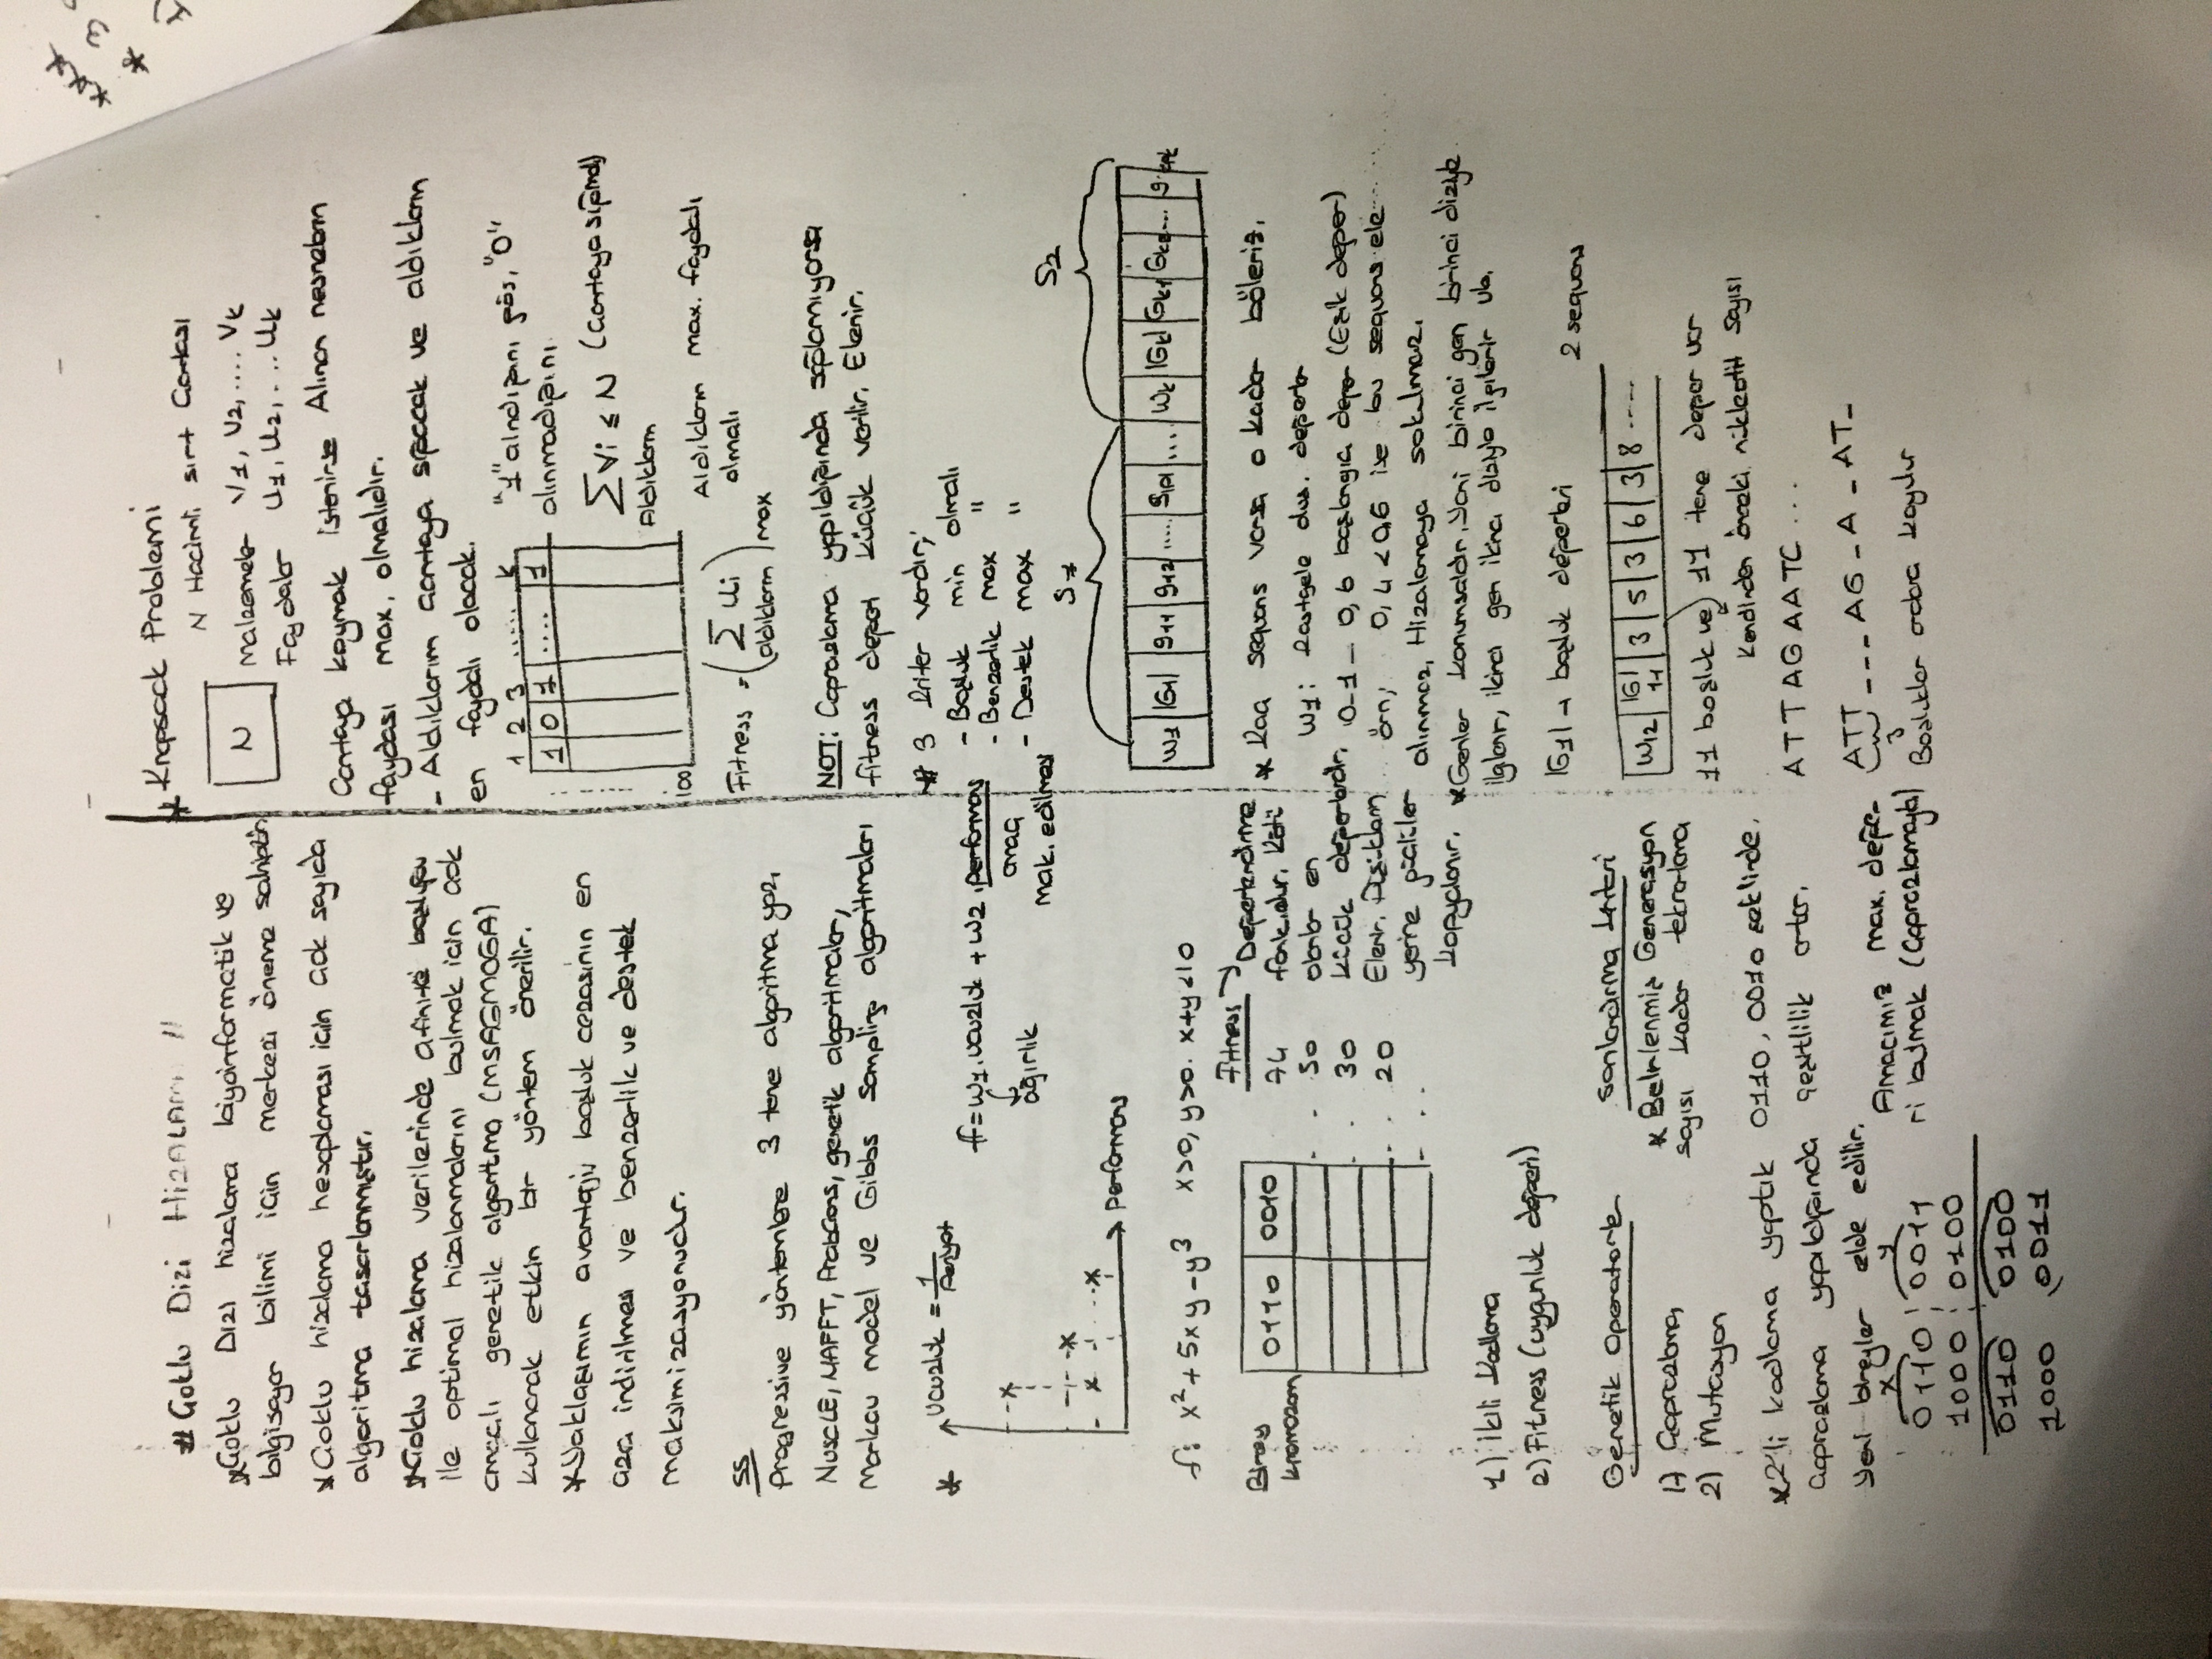 # Çoklu Dizi HİZALAMA //
* Çoklu Dizi hizalama biyoinformatik ve
bilgisayar bilimi için merkezi öneme sahiptir
* Çoklu hizalama hesaplaması için çok sayıda
algoritma tasarlanmıştır.
* Çoklu hizalama verilerinde afinite boşluğu
ile optimal hizalanmalarını bulmak için çok
amaçlı genetik algoritma (MSAGMOGA)
kullanarak etkin bir yöntem önerilir.
* Yaklaşımın avantajı; boşluk cezasının en
aza indirilmesi ve benzerlik ve destek
maksimizasyonudur.
SS
Progressive yöntemlere 3 tane algoritma yaz,
MUSCLE, MAFFT, ProbCons, genetik algoritmalar,
Markov model ve Gibbs Sampling algoritmaları
* Ucuzluk = 1 / 
f = w1.ucuzluk + w2.performans
ağırlık
amaç
mak. edilmesi
Performans
f: x² + 5xy - y³ x>0, y>0. x+y<10
Birey
kromozom
0110 0010
Fitness → Değerlendirme
74 fonk.dur. Kötü
50 olanlar en
30 küçük değerlerdir.
20 Elenir. Düşüklerin
yerine güçlüler
kopyalanır.
1) İkili Kodlama
2) Fitness (uygunluk değeri)
Genetik Operatörler
1) Çaprazlama,
2) Mutasyon
Sonlandırma Kriteri
* Belirlenmiş Generasyon
sayısı kadar tekrarlama
* 2'li kodlama yaptık 0110, 0010 şeklinde.
Çaprazlama yapıldığında çeşitlilik artar.
Yeni bireyler elde edilir.
x y
0110 0011
1000 0100
0110 0100
1000 0011
Amacımız max. değe-
ri bulmak (Çaprazlamayla)
* Knapsack Problemi
N Hacimli sırt Çantası
N
Malzemeler V1, V2, .... Vk
Faydalar U1, U2, .... Uk
Çantaya koymak istenirse Alınan nesnelerin
faydası max. olmalıdır.
- Aldıklarım çantaya sığacak ve aldıklarım
en faydalı olacak.
1 2 3 ..... k
1 0 1 .... 1
100
"1" alındığını gös, "0"
alınmadığını
∑Vi ≤ N (Çantaya sığmalı)
Aldıklarım
Aldıklarım max. faydalı
olmalı
Fitness = (∑ Ui) max
aldıklarım
NOT: Çaprazlama yapıldığında sağlamıyorsa
fitness değeri küçük verilir. Elenir.
# 3 kriter vardır;
- Boşluk min olmalı
- Benzerlik max "
- Destek max "
S1 S2
w1 |G1| g11 g12 ..... .... wk |Gk| Gk1 Gk2 ...
* Kaç sequans varsa o kadar böleriz.
w1: Rastgele değerler
0-1 - 0,6 başlangıç değer (Eşik değer)
örn; 0,4 < 0,6 ise bu sequans ele
alınmaz, Hizalamaya sokulmaz.
* Genler konumsaldır. Yani birinci gen birinci diziyle
ilgilenir, ikinci gen ikinci diziyle ilgilenir vb.
|G1| → boşluk değerleri
2 sequans
w12 |G| 11 3 5 3 6 3 8 ----
11 boşluk ve 11 tane değer var
kendinden önceki nükleotit sayısı
ATTAGAATC ...
ATT _ _ _ AG _ A _ AT _
3
Boşluklar oralara koyulur
*** 
* 3
1)